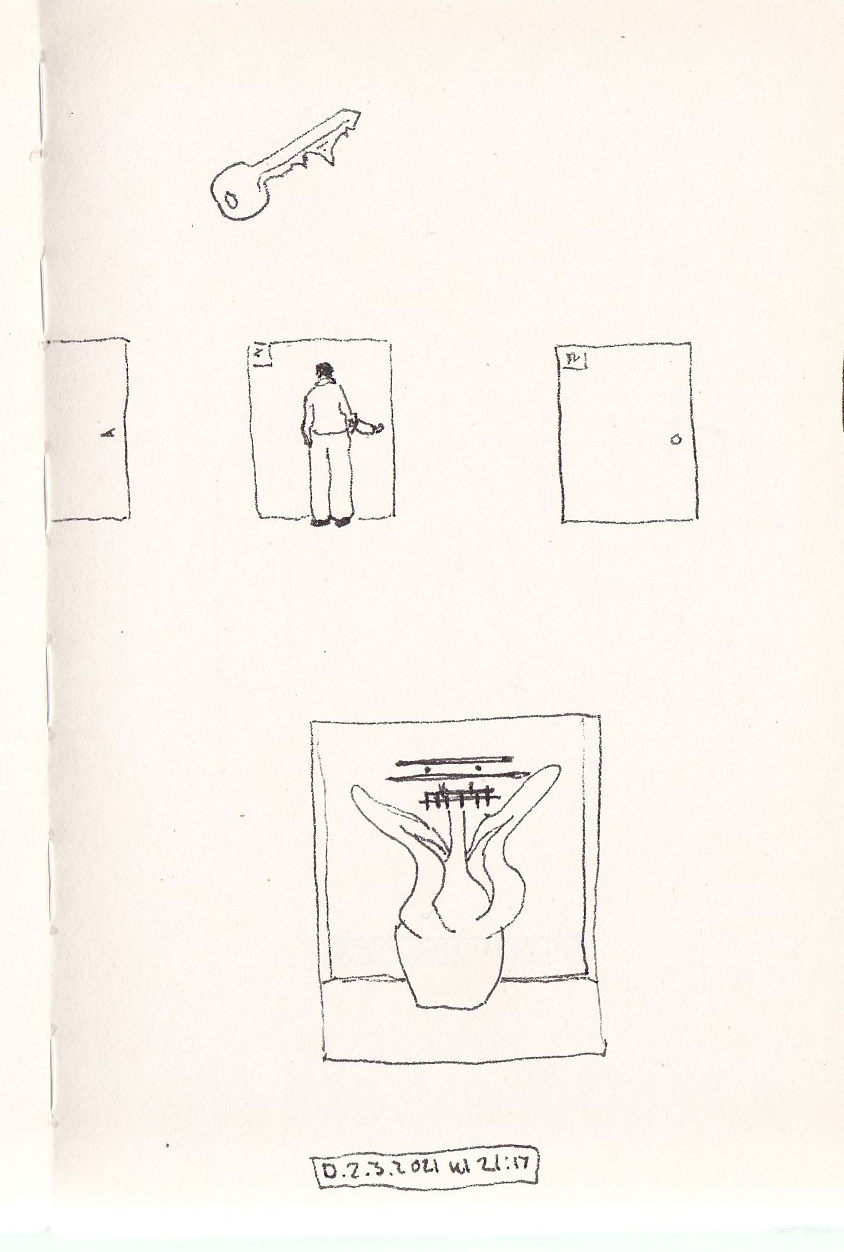 D.2.3.2021 kl 21:17